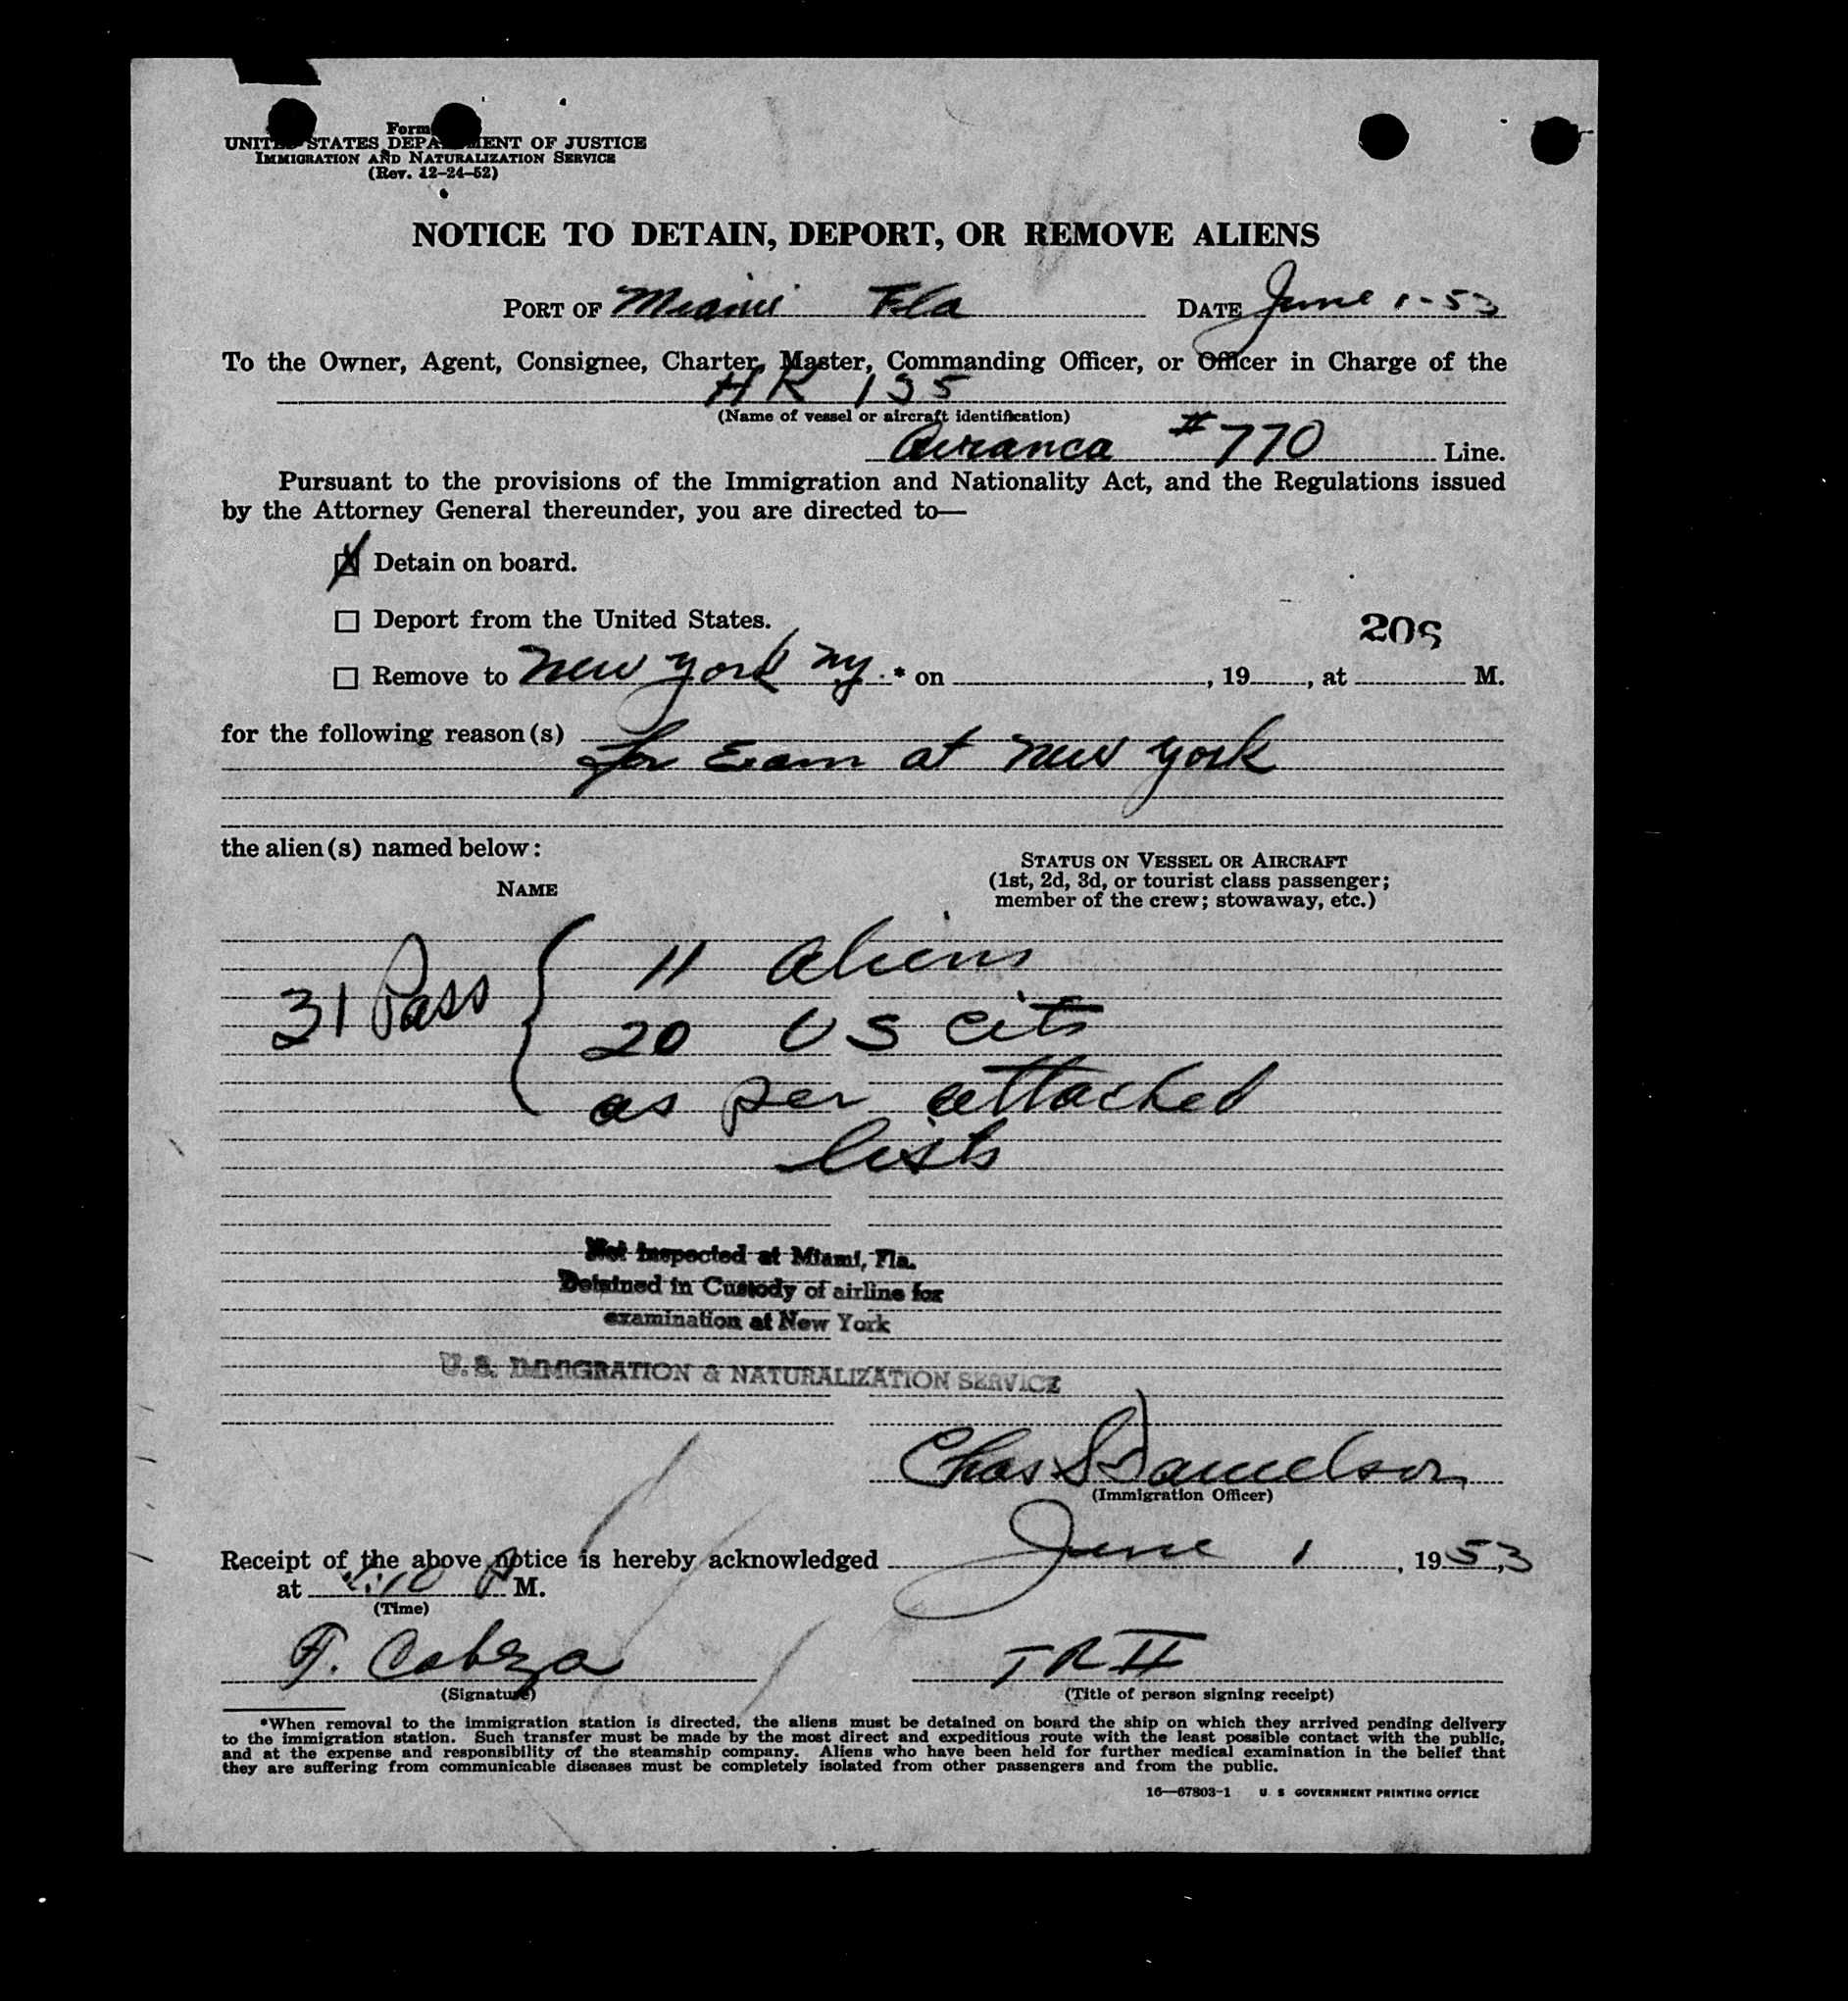 Form
UNITED STATES DEPARTMENT OF JUSTICE
IMMIGRATION AND NATURALIZATION SERVICE
(Rev. 12-24-52)
NOTICE TO DETAIN, DEPORT, OR REMOVE ALIENS
PORT OF Miami Fla DATE June 1-53
To the Owner, Agent, Consignee, Charter, Master, Commanding Officer, or Officer in Charge of the
HK 135
(Name of vessel or aircraft identification)
Avianca #770 Line.
Pursuant to the provisions of the Immigration and Nationality Act, and the Regulations issued
by the Attorney General thereunder, you are directed to—
☒ Detain on board.
☐ Deport from the United States.
206
☐ Remove to New York NY.* on , 19 , at M.
for the following reason(s)
for Exam at New York
the alien(s) named below:
STATUS ON VESSEL OR AIRCRAFT
NAME
(1st, 2d, 3d, or tourist class passenger;
member of the crew; stowaway, etc.)
11 Aliens
31 Pass
20 US Cits
as per attached
lists
Not Inspected at Miami, Fla.
Detained in Custody of airline for
examination at New York
U. S. IMMIGRATION & NATURALIZATION SERVICE
Chas S Danielson
(Immigration Officer)
Receipt of the above notice is hereby acknowledged June 1, 1953,
at :10 P M.
(Time)
F. Cabeza TR II
(Signature) (Title of person signing receipt)
*When removal to the immigration station is directed, the aliens must be detained on board the ship on which they arrived pending delivery
to the immigration station. Such transfer must be made by the most direct and expeditious route with the least possible contact with the public,
and at the expense and responsibility of the steamship company. Aliens who have been held for further medical examination in the belief that
they are suffering from communicable diseases must be completely isolated from other passengers and from the public.
16—67803-1 U S GOVERNMENT PRINTING OFFICE